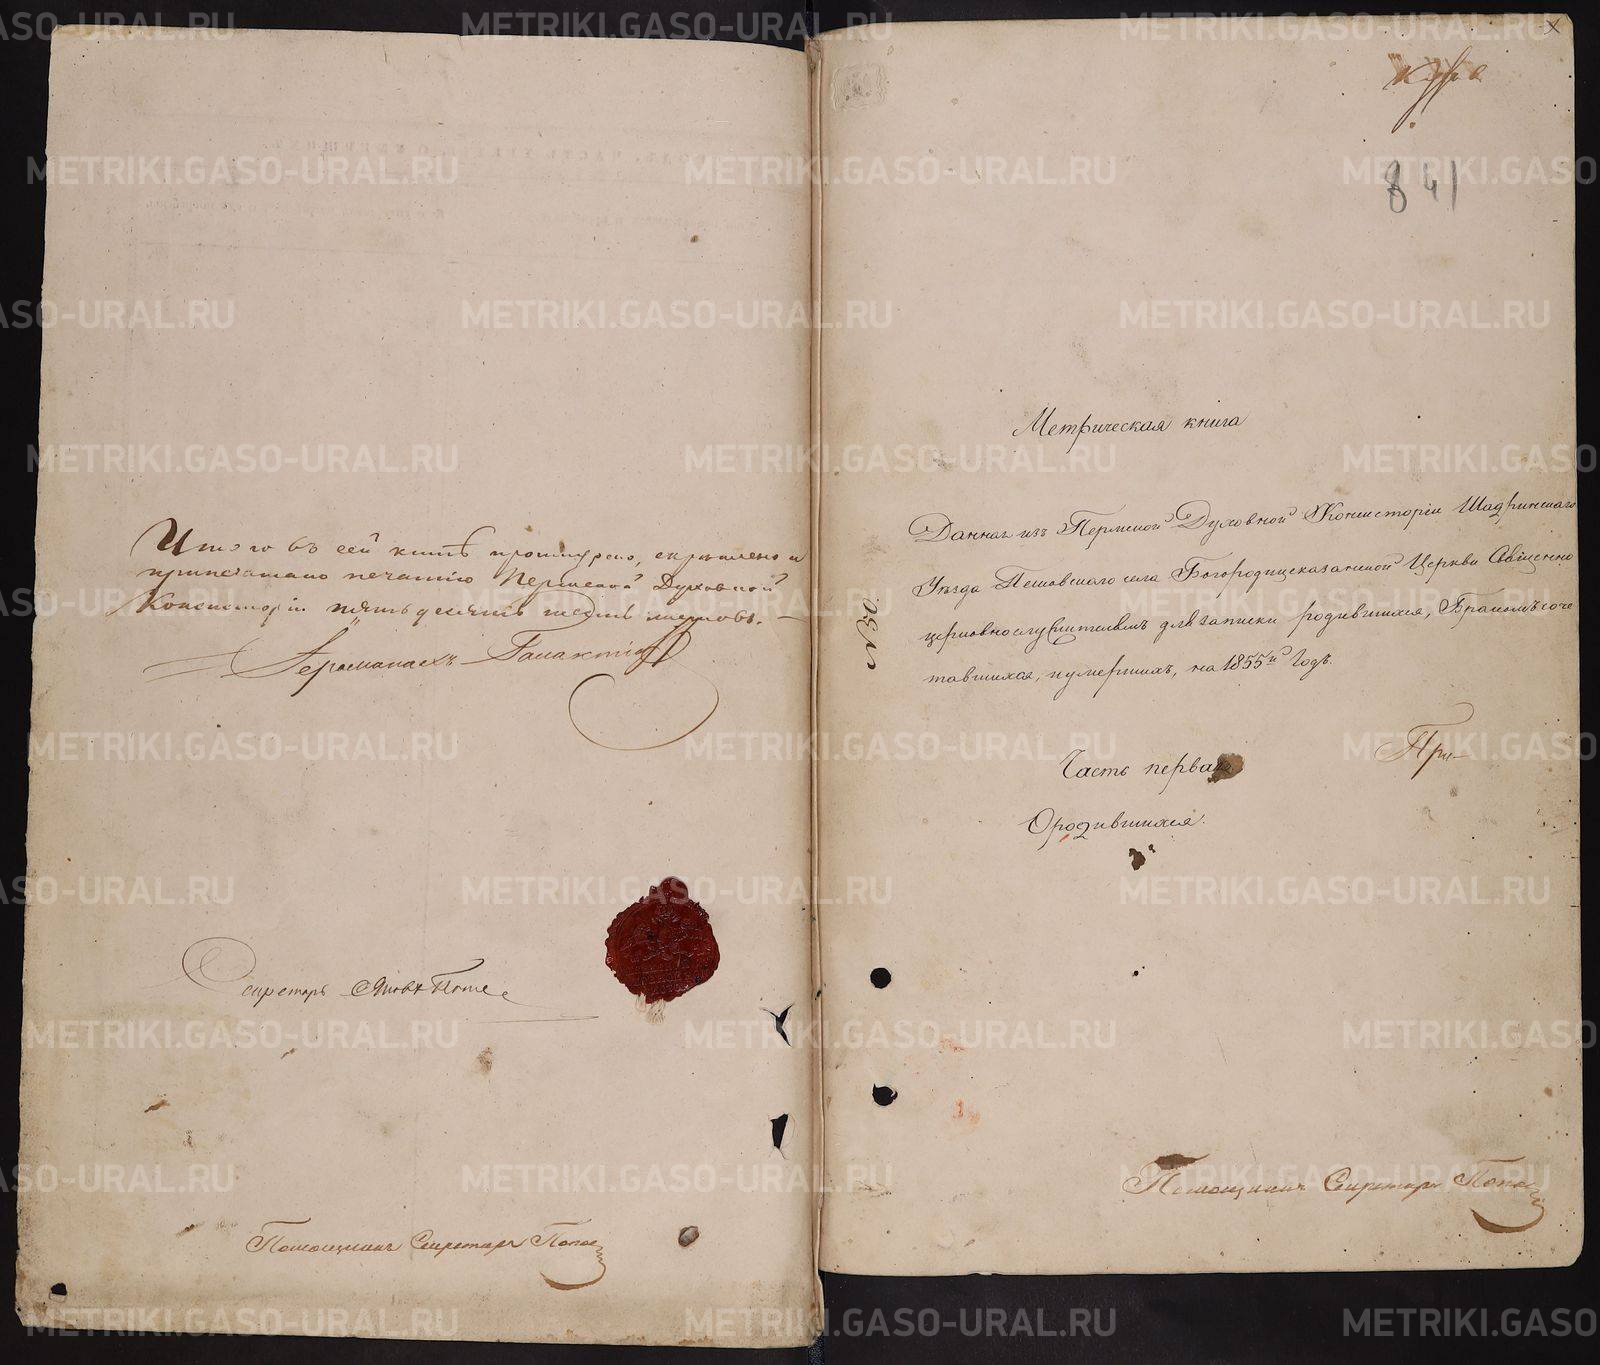 Итого въ сей книгѣ прошнурено, скрѣплено и
припечатано печатію Пермской Духовной
Консисторіи пятьдесятъ шесть листовъ.
Іеромонахъ
Секретарь
Помощникъ Секретаря Попов
841
Метрическая книга
Данная изъ Пермской Духовной Консисторіи Шадринскаго
Уѣзда Пешовскаго села Богородицеказанской Церкви Священно
церковнослужителямъ для записки родившихся, Бракомъ соче
тавшихся, и умершихъ, на 1855й Годъ.
При-
Часть первая
О родившихся.
Помощникъ Секретаря Попов
METRIKI.GASO-URAL.RU